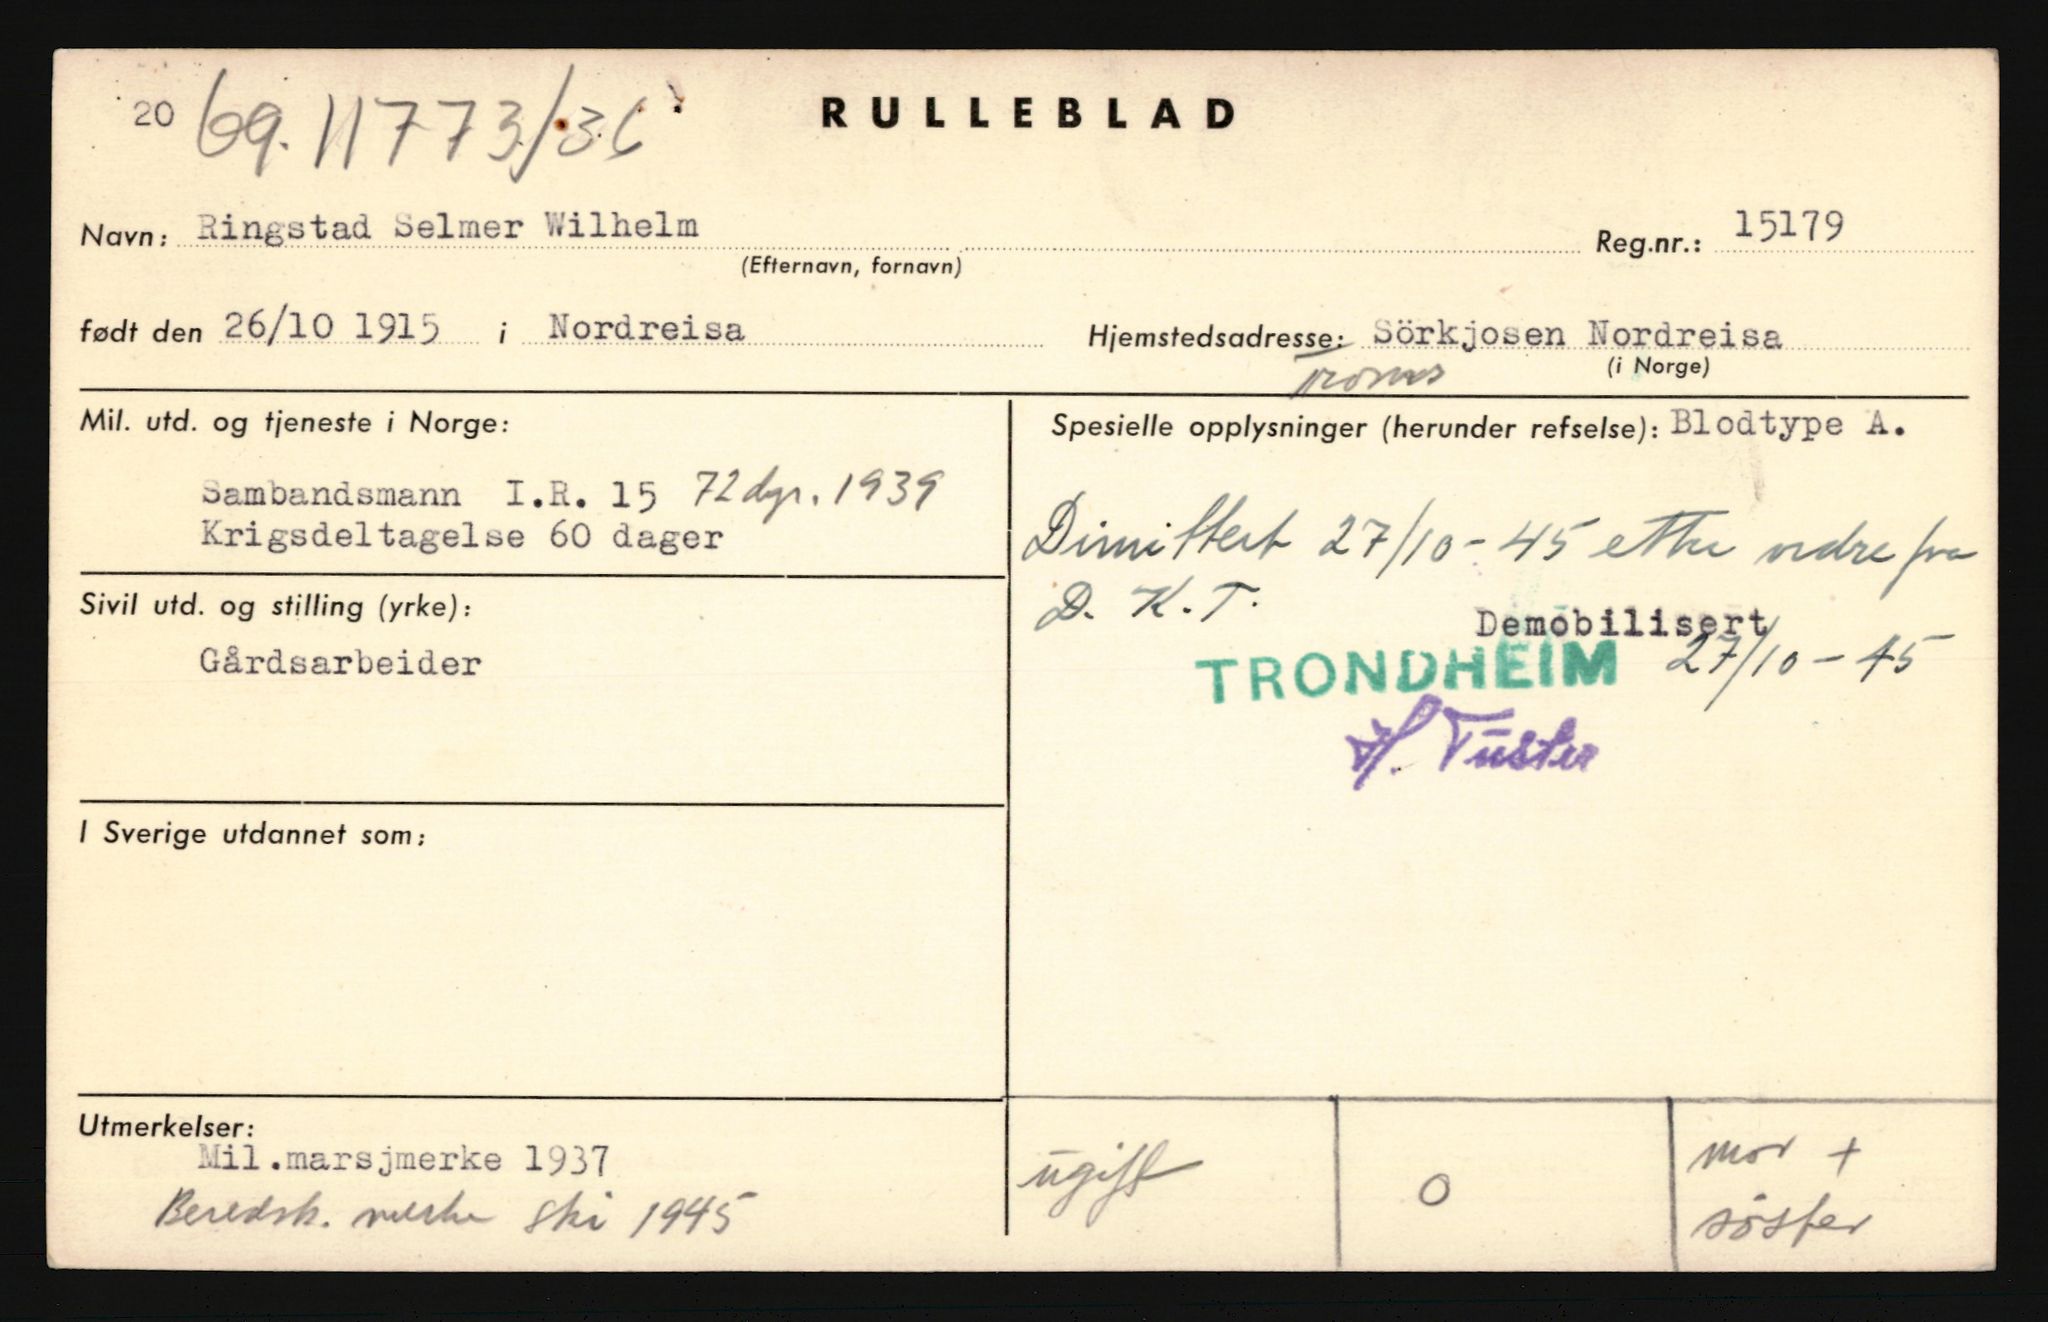 20 69. 11773/36
RULLEBLAD
Navn: Ringstad Selmer Wilhelm Reg.nr.: 15179
(Efternavn, fornavn)
født den 26/10 1915 i Nordreisa Hjemstedsadresse: Sörkjosen Nordreisa
Troms (i Norge)
Mil. utd. og tjeneste i Norge:
Sambandsmann I.R. 15 72 dgr. 1939
Krigsdeltagelse 60 dager
Sivil utd. og stilling (yrke):
Gårdsarbeider
I Sverige utdannet som:
Utmerkelser:
Mil.marsjmerke 1937
Beredsk. merke ski 1945
Spesielle opplysninger (herunder refselse): Blodtype A.
Dimittert 27/10-45 etter ordre fra
D. K. T.
Demobilisert
TRONDHEIM 27/10-45
ugift 0 mor +
söster